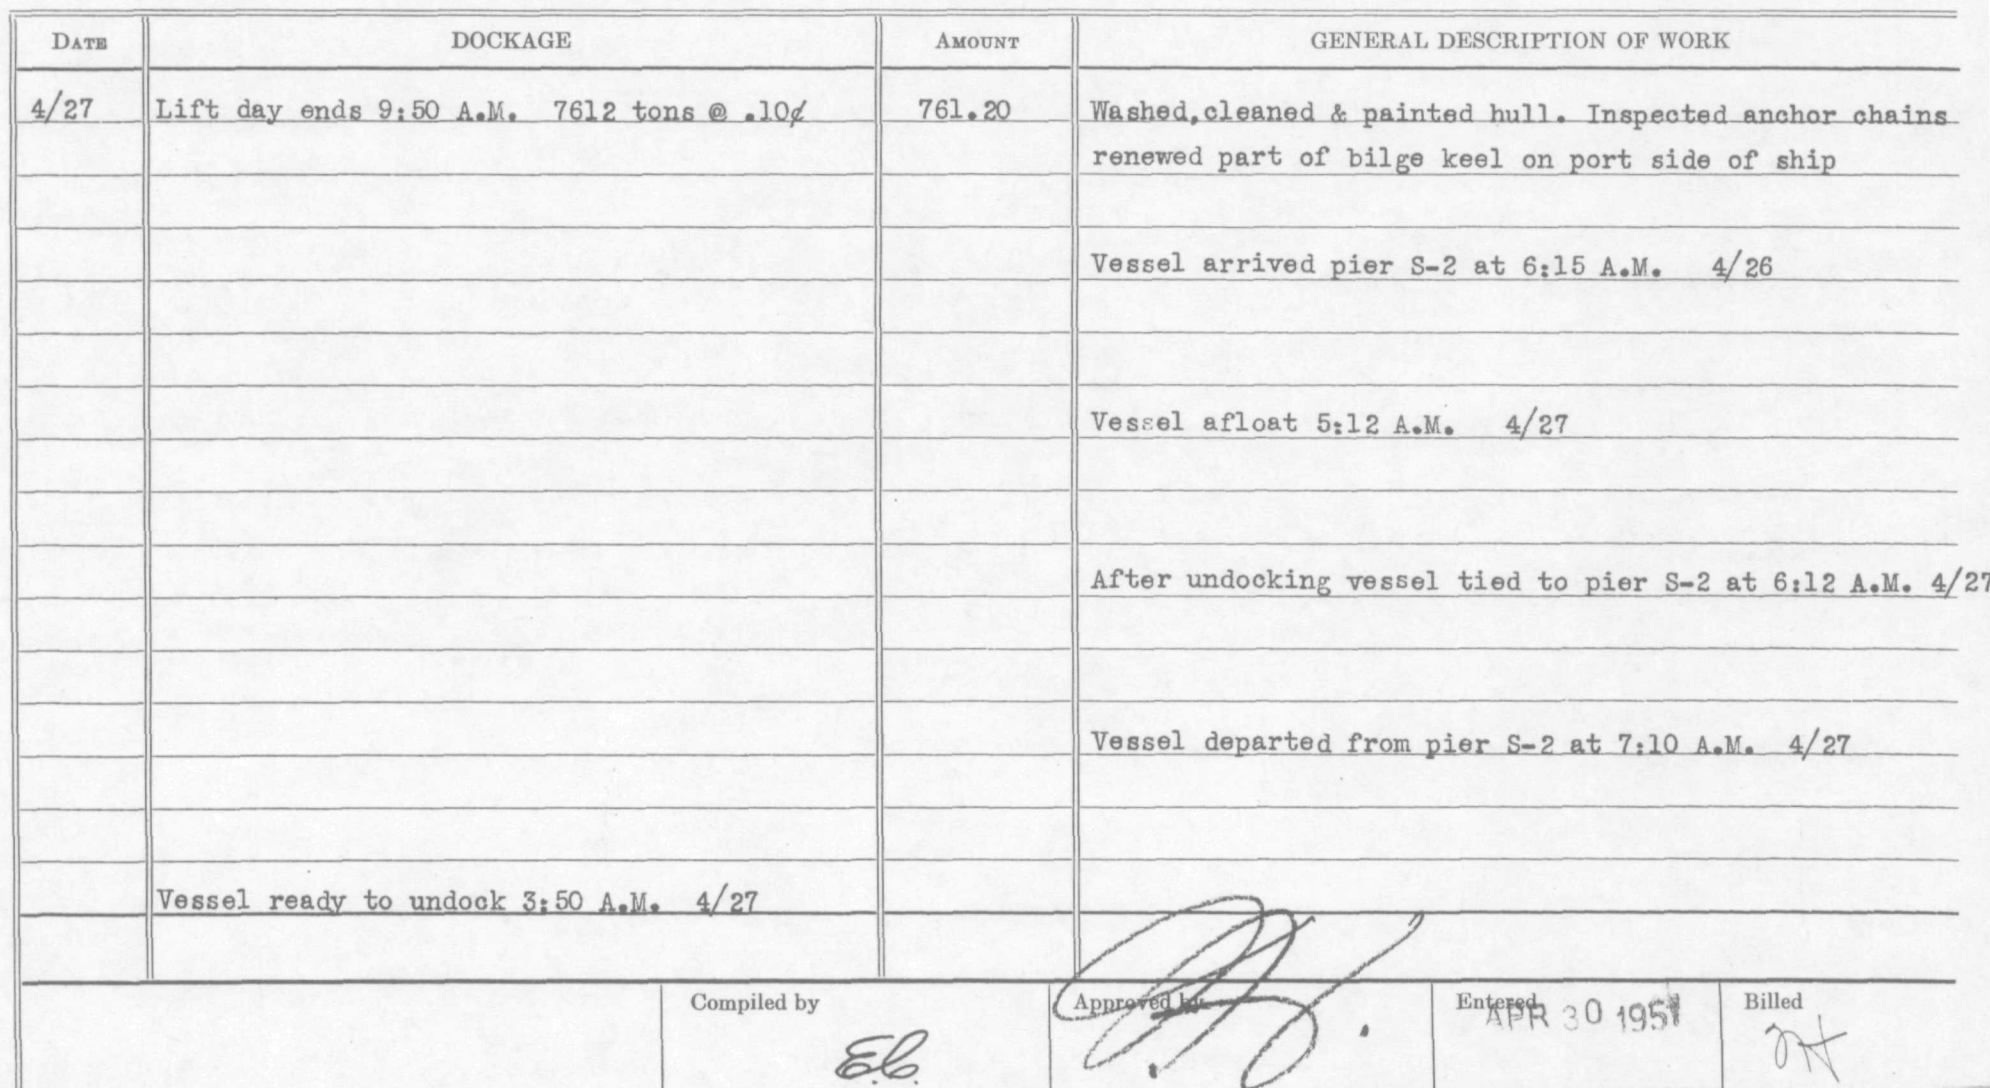 DATE DOCKAGE AMOUNT GENERAL DESCRIPTION OF WORK
4/27 Lift day ends 9:50 A.M. 7612 tons @ .10¢ 761.20 Washed,cleaned & painted hull. Inspected anchor chains
renewed part of bilge keel on port side of ship
Vessel arrived pier S-2 at 6:15 A.M. 4/26
Vessel afloat 5:12 A.M. 4/27
After undocking vessel tied to pier S-2 at 6:12 A.M. 4/27
Vessel departed from pier S-2 at 7:10 A.M. 4/27
Vessel ready to undock 3:50 A.M. 4/27
Compiled by Approved by Entered Billed
APR 30 1951